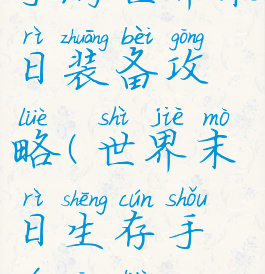 rì zhuāng bèi gōng
日装备攻
lüè shì jiè mò
略(世界末
rì shēng cún shǒu
日生存手